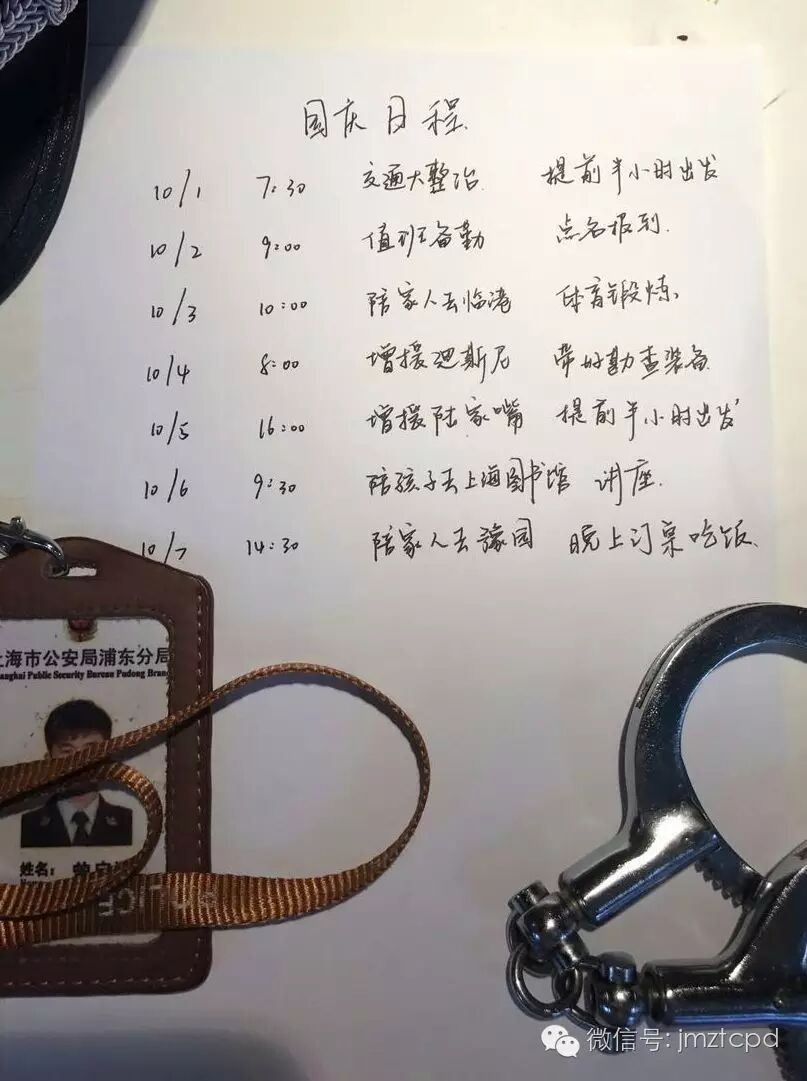 国庆日程
10/1 7:30 交通大整治 提前半小时出发
10/2 9:00 值班备勤 点名报到
10/3 10:00 陪家人去临港 体育锻炼
10/4 8:00 增援迪斯尼 带好勘查装备
10/5 16:00 增援陆家嘴 提前半小时出发
10/6 9:30 陪孩子去上海图书馆 讲座
10/7 14:30 陪家人去豫园 晚上订桌吃饭
上海市公安局浦东分局
anghai Public Security Bureau Pudong Bran
姓名:
POLICE
微信号: jmztcpd